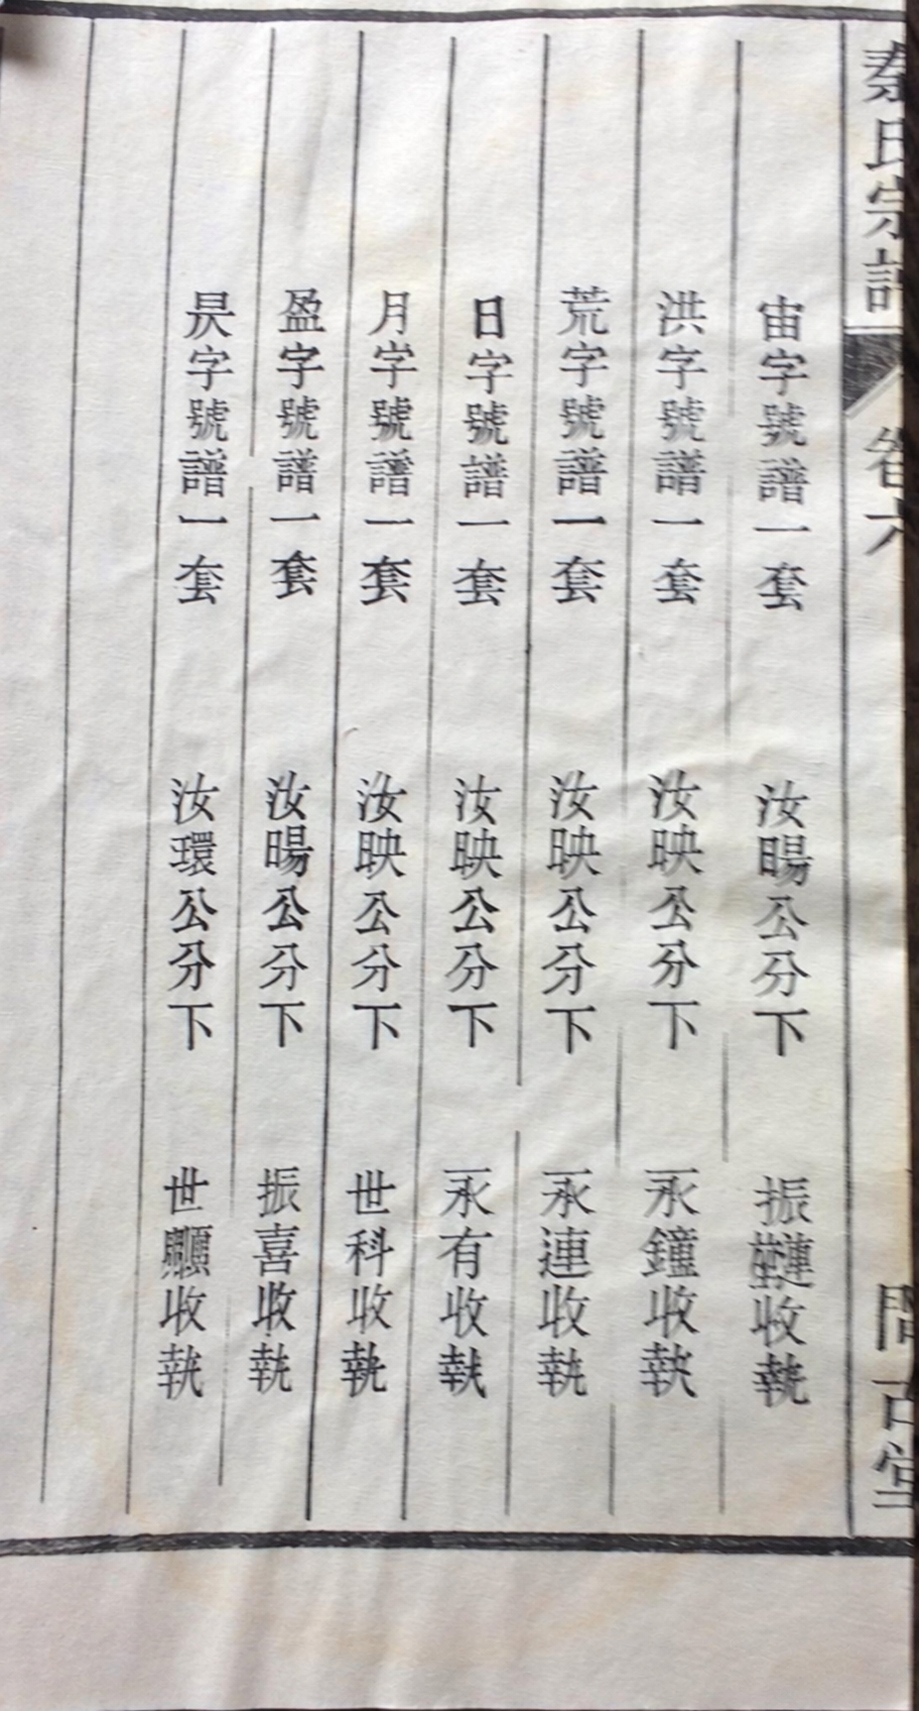 秦氏宗譜 卷六 古堂
宙字號譜一套 汝暘公分下 振收執
洪字號譜一套 汝映公分下 永鐘收執
荒字號譜一套 汝映公分下 永連收執
日字號譜一套 汝映公分下 永有收執
月字號譜一套 汝映公分下 世科收執
盈字號譜一套 汝暘公分下 振喜收執
昃字號譜一套 汝環公分下 世收執